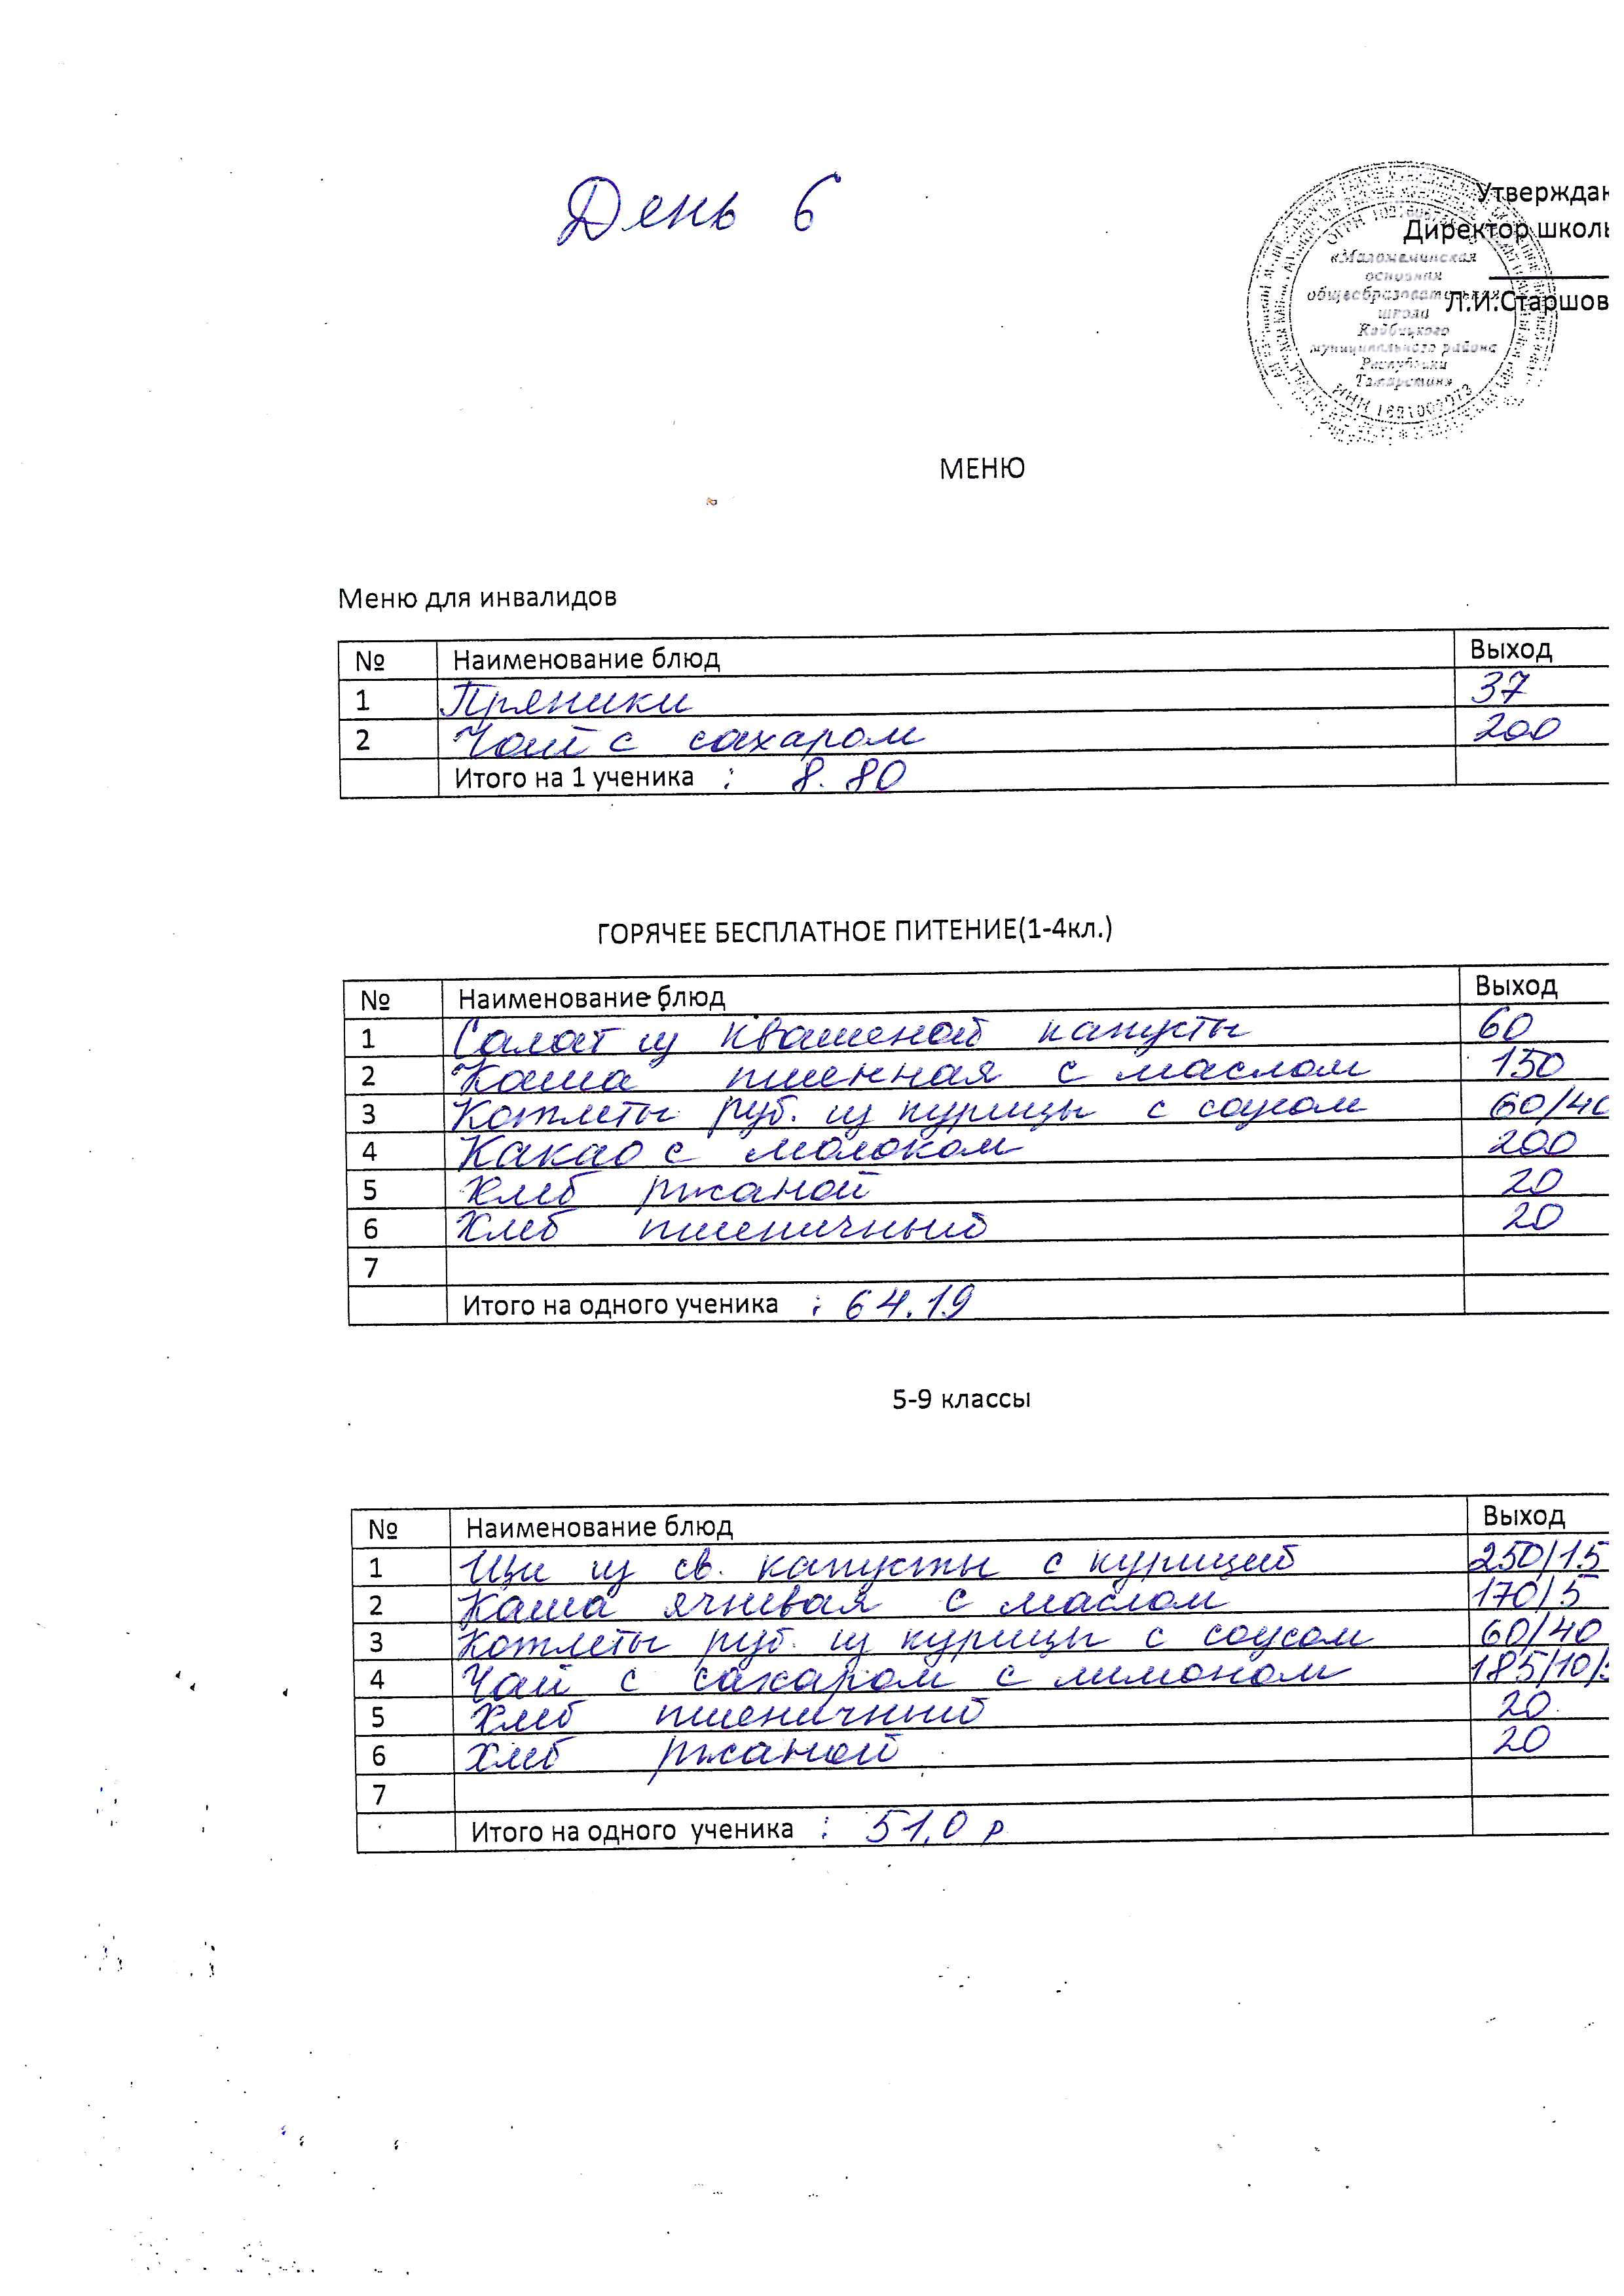 День 6
Утверждаю
Директор школы
Л.И.Старшов
«Маломеминская
основная
общеобразовательная
школа
Кайбицкого
муниципального района
Республики
Татарстан»
МЕНЮ
Меню для инвалидов
№ Наименование блюд Выход
1 Пряники 37
2 Чай с сахаром 200
Итого на 1 ученика : 8.80
ГОРЯЧЕЕ БЕСПЛАТНОЕ ПИТЕНИЕ(1-4кл.)
№ Наименование блюд Выход
1 Салат из квашеной капусты 60
2 Каша пшенная с маслом 150
3 Котлеты руб. из курицы с соусом 60/40
4 Какао с молоком 200
5 Хлеб ржаной 20
6 Хлеб пшеничный 20
7
Итого на одного ученика : 64.19
5-9 классы
№ Наименование блюд Выход
1 Щи из св. капусты с курицей 250/15
2 Каша ячневая с маслом 170/5
3 Котлеты руб. из курицы с соусом 60/40
4 Чай с сахаром с лимоном 185/10/
5 Хлеб пшеничный 20
6 Хлеб ржаной 20
7
Итого на одного ученика : 51,0 р